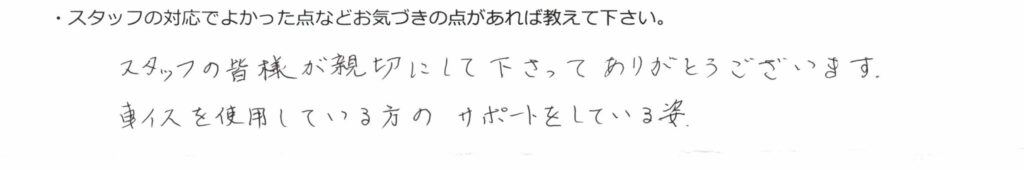 ・スタッフの対応でよかった点などお気づきの点があれば教えて下さい。
スタッフの皆様が親切にして下さってありがとうございます.
車イスを使用している方の サポートをしている姿.